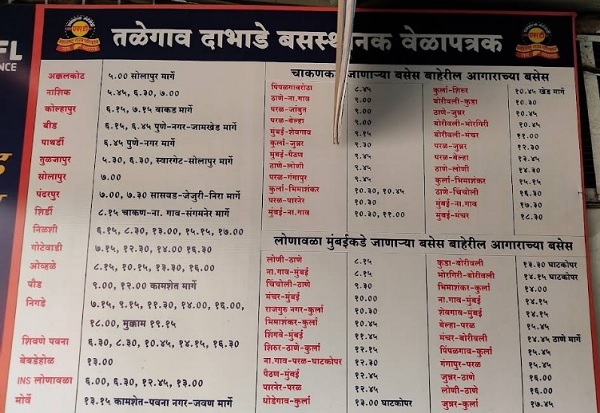 FL
NANCE
तळेगाव दाभाडे बसस्थानक वेळापत्रक
अक्कलकोट ५.०० सोलापूर मार्गे
नाशिक ५.४५, ६.३०, ७.००
कोल्हापूर ६.१५, ७.१५ वाकड मार्गे
बीड ६.१५, ६.४५ पुणे-नगर-जामखेड मार्गे
पाथर्डी ६.४५ पुणे-नगर मार्गे
तुळजापूर ५.३०, ६.३०, स्वारगेट-सोलापूर मार्गे
सोलापूर ७.००
पंढरपूर ७.००, ७.३० सासवड-जेजुरी-निरा मार्गे
शिर्डी ८.१५ चाकण-ना. गाव-संगमनेर मार्गे
निळशी ६.१५, ८.३०, १३.००, १५.१५, १७.००
गोटेवाडी ७.१५, १२.३०, १४.०० १६.३०
ओव्हळे ८.१५, १०.१५, १३.३०, १६.००
पीड ९.००, १२.०० कामशेत मार्गे
निगडे ७.१५, ९.१५, ११.३०, १४.००, १६.००,
१८.००, मुक्काम १९.१५
शिवणे पवना ६.३०, ८.३०, १०.४५, १४.१५, १६.३०
बेबडेहोळ १३.००
INS लोणावळा ६.००, ६.३०, १२.४५, १३.००
मोर्वे १३.१५ कामशेत-पवना नगर-जवण मार्गे
चाकणक जाणाऱ्या बसेस बाहेरील आगाराच्या बसेस
पिंपळगाबरोठा ८.४५
ठाणे-ना.गाव ९.००
परळ-जांबुत ९.००
परळ-बेल्हा ९.००
मुंबई-शेवगाव ९.१५
कुर्ला-जुन्नर ९.३०
मुंबई-पैठण ९.३०
ठाणे-लोणी ९.४५
परळ-गंगापुर ९.४५
कुर्ला-भिमाशंकर १०.३०, १०.४५
परळ-पारनेर १०.३०
मुंबई-ना.गाव १०.३०, ११.००
कुर्ला-शिरुर १०.४५ खेड मार्गे
बोरीवली-कुडा १०.३०
ठाणे-जुन्नर १०.४५
बोरीवली-भोरगिरी १०.४५
बोरीवली-मंचर ११.००
परळ-जुन्नर १२.३०
परळ-बेल्हा १३.३०
कुर्ला-जुन्नर १४.३०
कुर्ला-भिमाशंकर १५.१५
ठाणे-चिंचोली १६.३०
मुंबई-ना.गाव १७.३०
मुंबई-मंचर १८.३०
लोणावळा मुंबईकडे जाणाऱ्या बसेस बाहेरील आगाराच्या बसेस
लोणी-ठाणे ८.१५
ना.गाव-मुंबई ९.१५
चिंचोली-ठाणे ९.३०
मंचर-मुंबई १०.००
राजगुरु नगर-कुर्ला १०.००
भिमाशंकर-कुर्ला १०.४५
शिंगवे-मुंबई १०.४५
शिरुर-ठाणे ११.००
ना.गाव-परळ-घाटकोपर १२.००
पैठण-मुंबई १२.४५
पारनेर-परळ १२.४५
धोडेगाव-कुर्ला १३.०० घाटकोपर
कुडा-बोरीवली १३.३० घाटकोपर
भोरगिरी-बोरीवली १४.१५ घाटकोपर
भिमाशंकर-कुर्ला १४.००
ना.गाव-मुंबई १४.१५
शेवगाव-मुंबई १४.१५
बेल्हा-परळ १५.४५
मंचर-बोरीवली १४.४५ ठाणे मार्गे
पिंपळगाव-कुर्ला १५.१५
गंगापुर-परळ १५.१५
जुन्नर-ठाणे १६.००
लोणी-ठाणे १६.००
जुन्नर-कुर्ला १७.४५